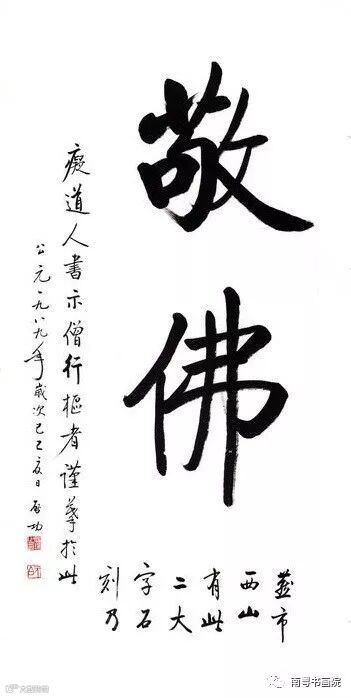 敬佛
燕市
西山
有此
二大
字石
刻乃
癡道人書示僧行樞者謹摹於此
公元一九八九年歲次己巳夏日 启功
南粤书画院